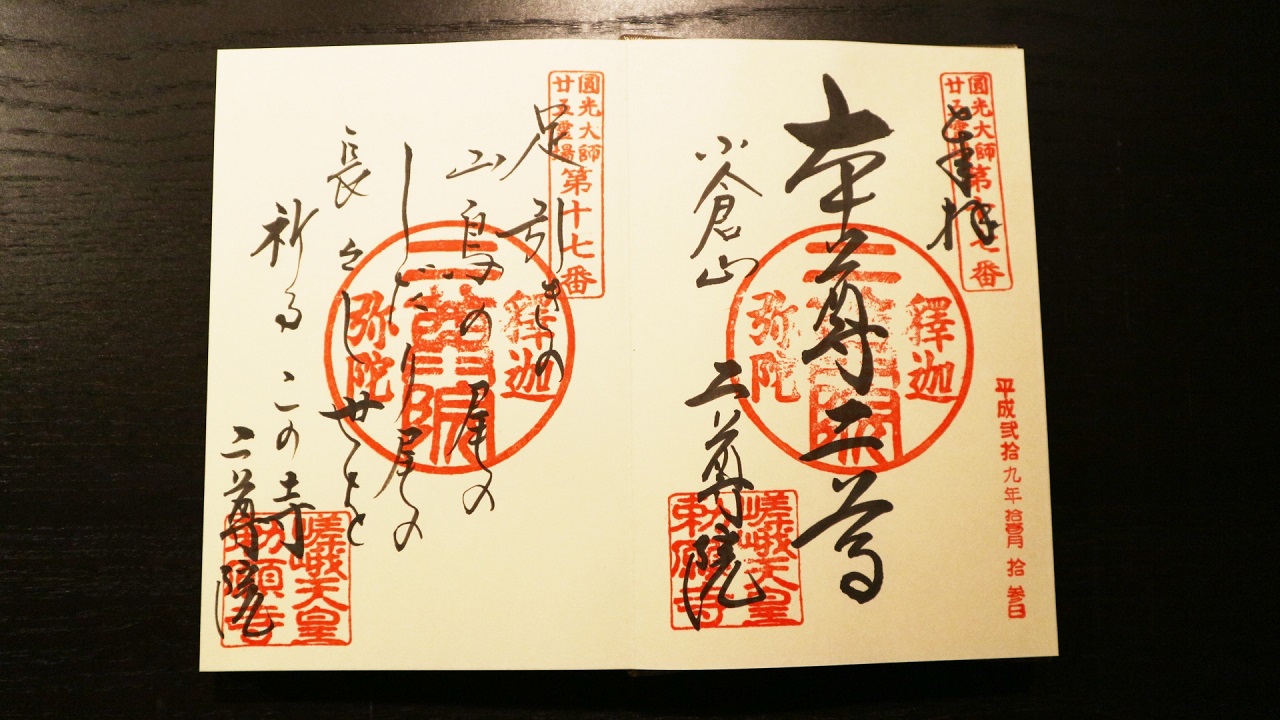 平成弐拾九年 拾壹月 拾参日
圓光大師
廿五靈場 第十七番
奉拝
本尊二尊
釋迦
二尊院
弥陀
小倉山 二尊院
嵯峨天皇
勅願寺
圓光大師
廿五靈場 第十七番
足引きの
山鳥の尾の
しだり尾の
長々し世をと
祈るこの寺
二尊院
釋迦
二尊院
弥陀
嵯峨天皇
勅願寺